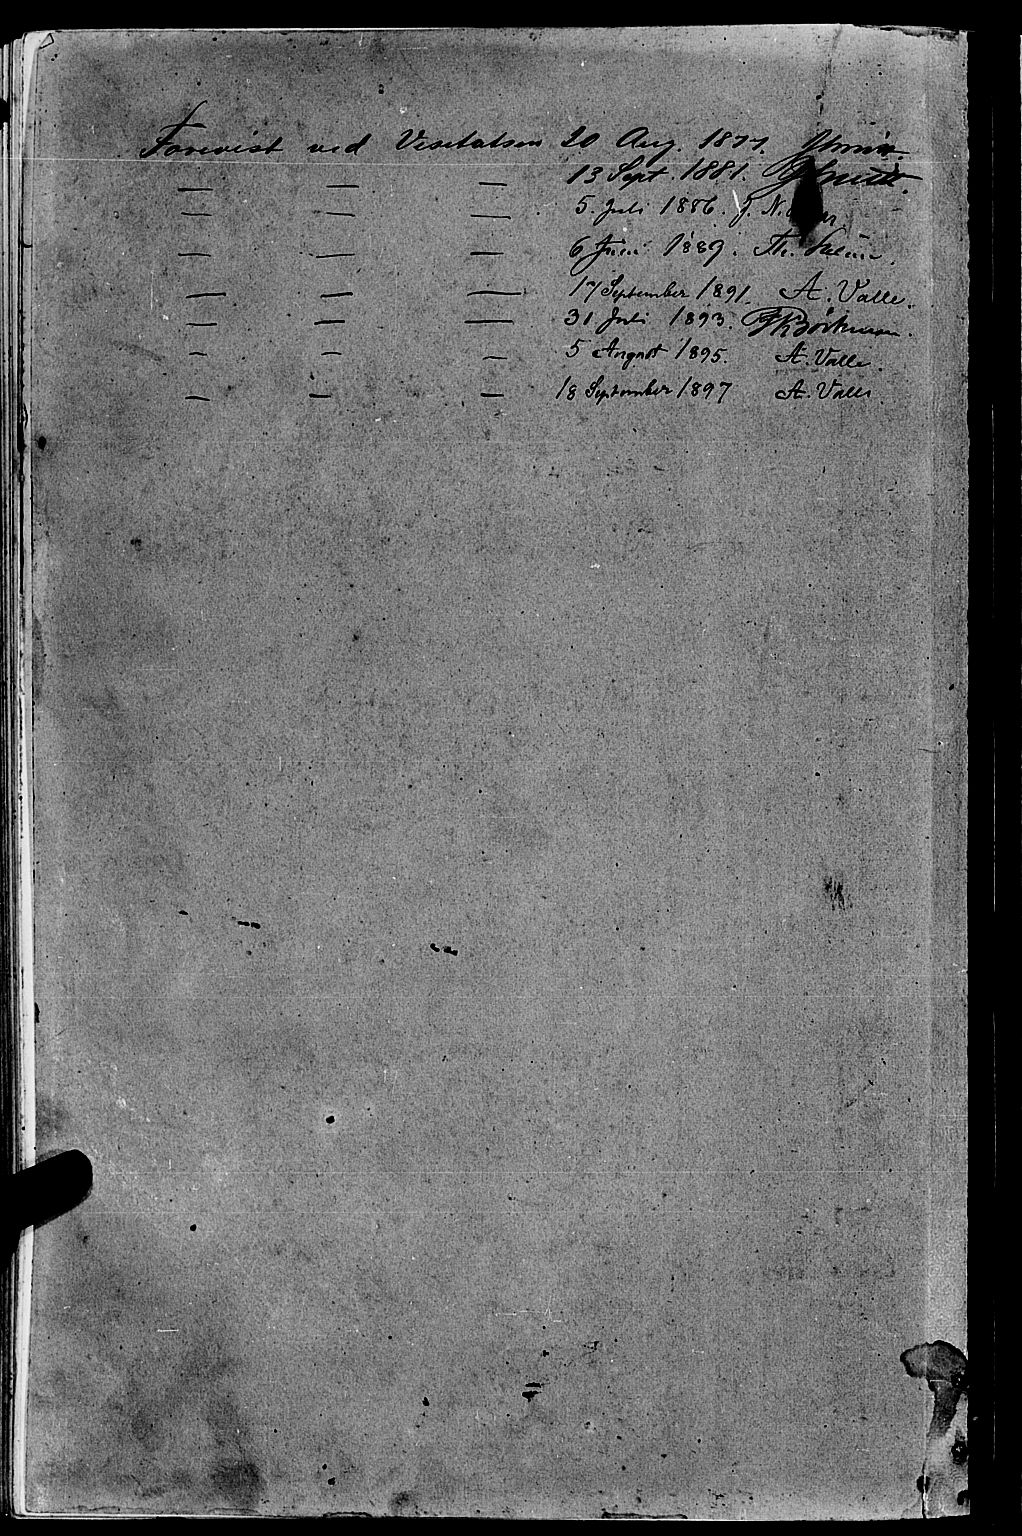 Forevist ved Visitatsen 20 Aug. 1877.
— — — 13 Sept. 1881.
— — — 5 Juli 1886. J. N.
— — — 6 Juni 1889. Th.
— — — 17 September 1891. A. Valle.
— — — 31 Juli 1893.
— — — 5 August 1895. A. Valle.
— — — 18 September 1897 A. Valle